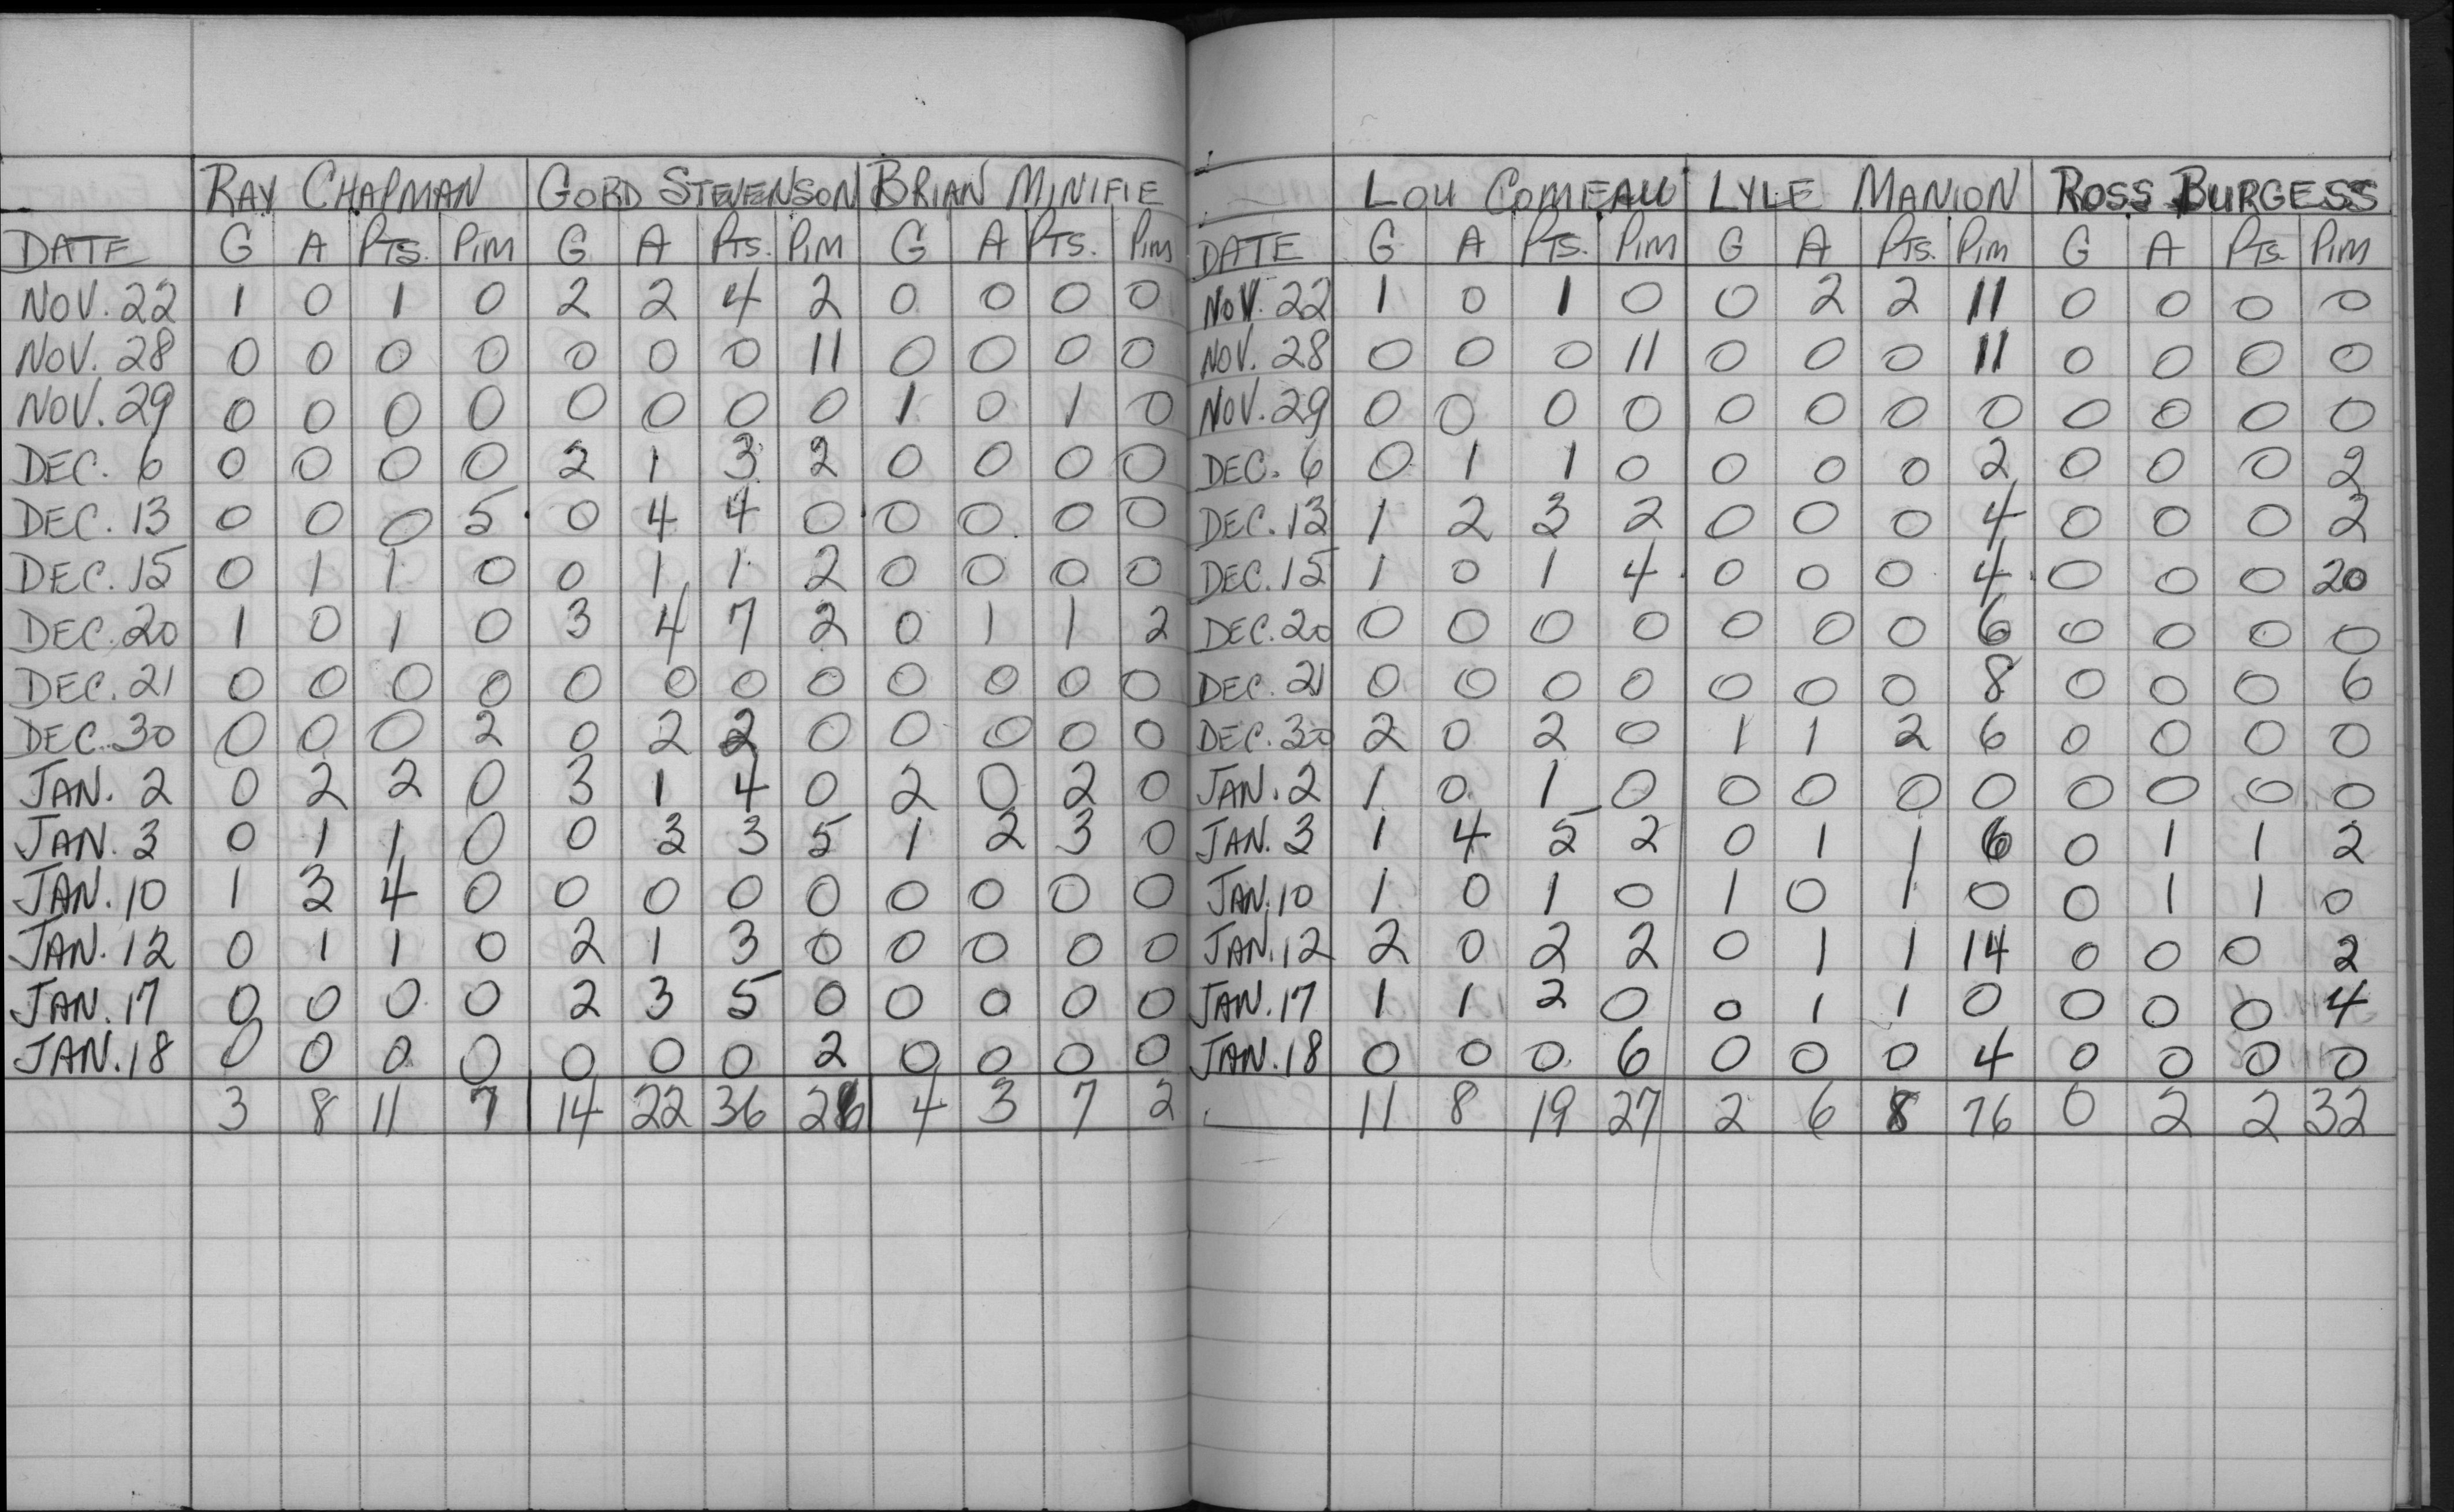 RAY CHAPMAN GORD STEVENSON BRIAN MINIFIE
DATE G A PTS. PIM G A PTS. PIM G A PTS. PIM
NOV. 22 1 0 1 0 2 2 4 2 0 0 0 0
NOV. 28 0 0 0 0 0 0 0 11 0 0 0 0
NOV. 29 0 0 0 0 0 0 0 0 1 0 1 0
DEC. 6 0 0 0 0 2 1 3 2 0 0 0 0
DEC. 13 0 0 0 5 0 4 4 0 0 0 0 0
DEC. 15 0 1 1 0 0 1 1 2 0 0 0 0
DEC. 20 1 0 1 0 3 4 7 2 0 1 1 2
DEC. 21 0 0 0 0 0 0 0 0 0 0 0 0
DEC. 30 0 0 0 2 0 2 2 0 0 0 0 0
JAN. 2 0 2 2 0 3 1 4 0 2 0 2 0
JAN. 3 0 1 1 0 0 3 3 5 1 2 3 0
JAN. 10 1 3 4 0 0 0 0 0 0 0 0 0
JAN. 12 0 1 1 0 2 1 3 0 0 0 0 0
JAN. 17 0 0 0 0 2 3 5 0 0 0 0 0
JAN. 18 0 0 0 0 0 0 0 2 0 0 0 0
3 8 11 7 14 22 36 26 4 3 7 2
LOU COMEAU LYLE MANION ROSS BURGESS
DATE G A PTS. PIM G A PTS. PIM G A PTS. PIM
NOV. 22 1 0 1 0 0 2 2 11 0 0 0 0
NOV. 28 0 0 0 11 0 0 0 11 0 0 0 0
NOV. 29 0 0 0 0 0 0 0 0 0 0 0 0
DEC. 6 0 1 1 0 0 0 0 2 0 0 0 2
DEC. 13 1 2 3 2 0 0 0 4 0 0 0 2
DEC. 15 1 0 1 4 0 0 0 4 0 0 0 20
DEC. 20 0 0 0 0 0 0 0 6 0 0 0 0
DEC. 21 0 0 0 0 0 0 0 8 0 0 0 6
DEC. 30 2 0 2 0 1 1 2 6 0 0 0 0
JAN. 2 1 0 1 0 0 0 0 0 0 0 0 0
JAN. 3 1 4 5 2 0 1 1 6 0 1 1 2
JAN. 10 1 0 1 0 1 0 1 0 0 1 1 0
JAN. 12 2 0 2 2 0 1 1 14 0 0 0 2
JAN. 17 1 1 2 0 0 1 1 0 0 0 0 4
JAN. 18 0 0 0 6 0 0 0 4 0 0 0 0
11 8 19 27 2 6 8 76 0 2 2 32